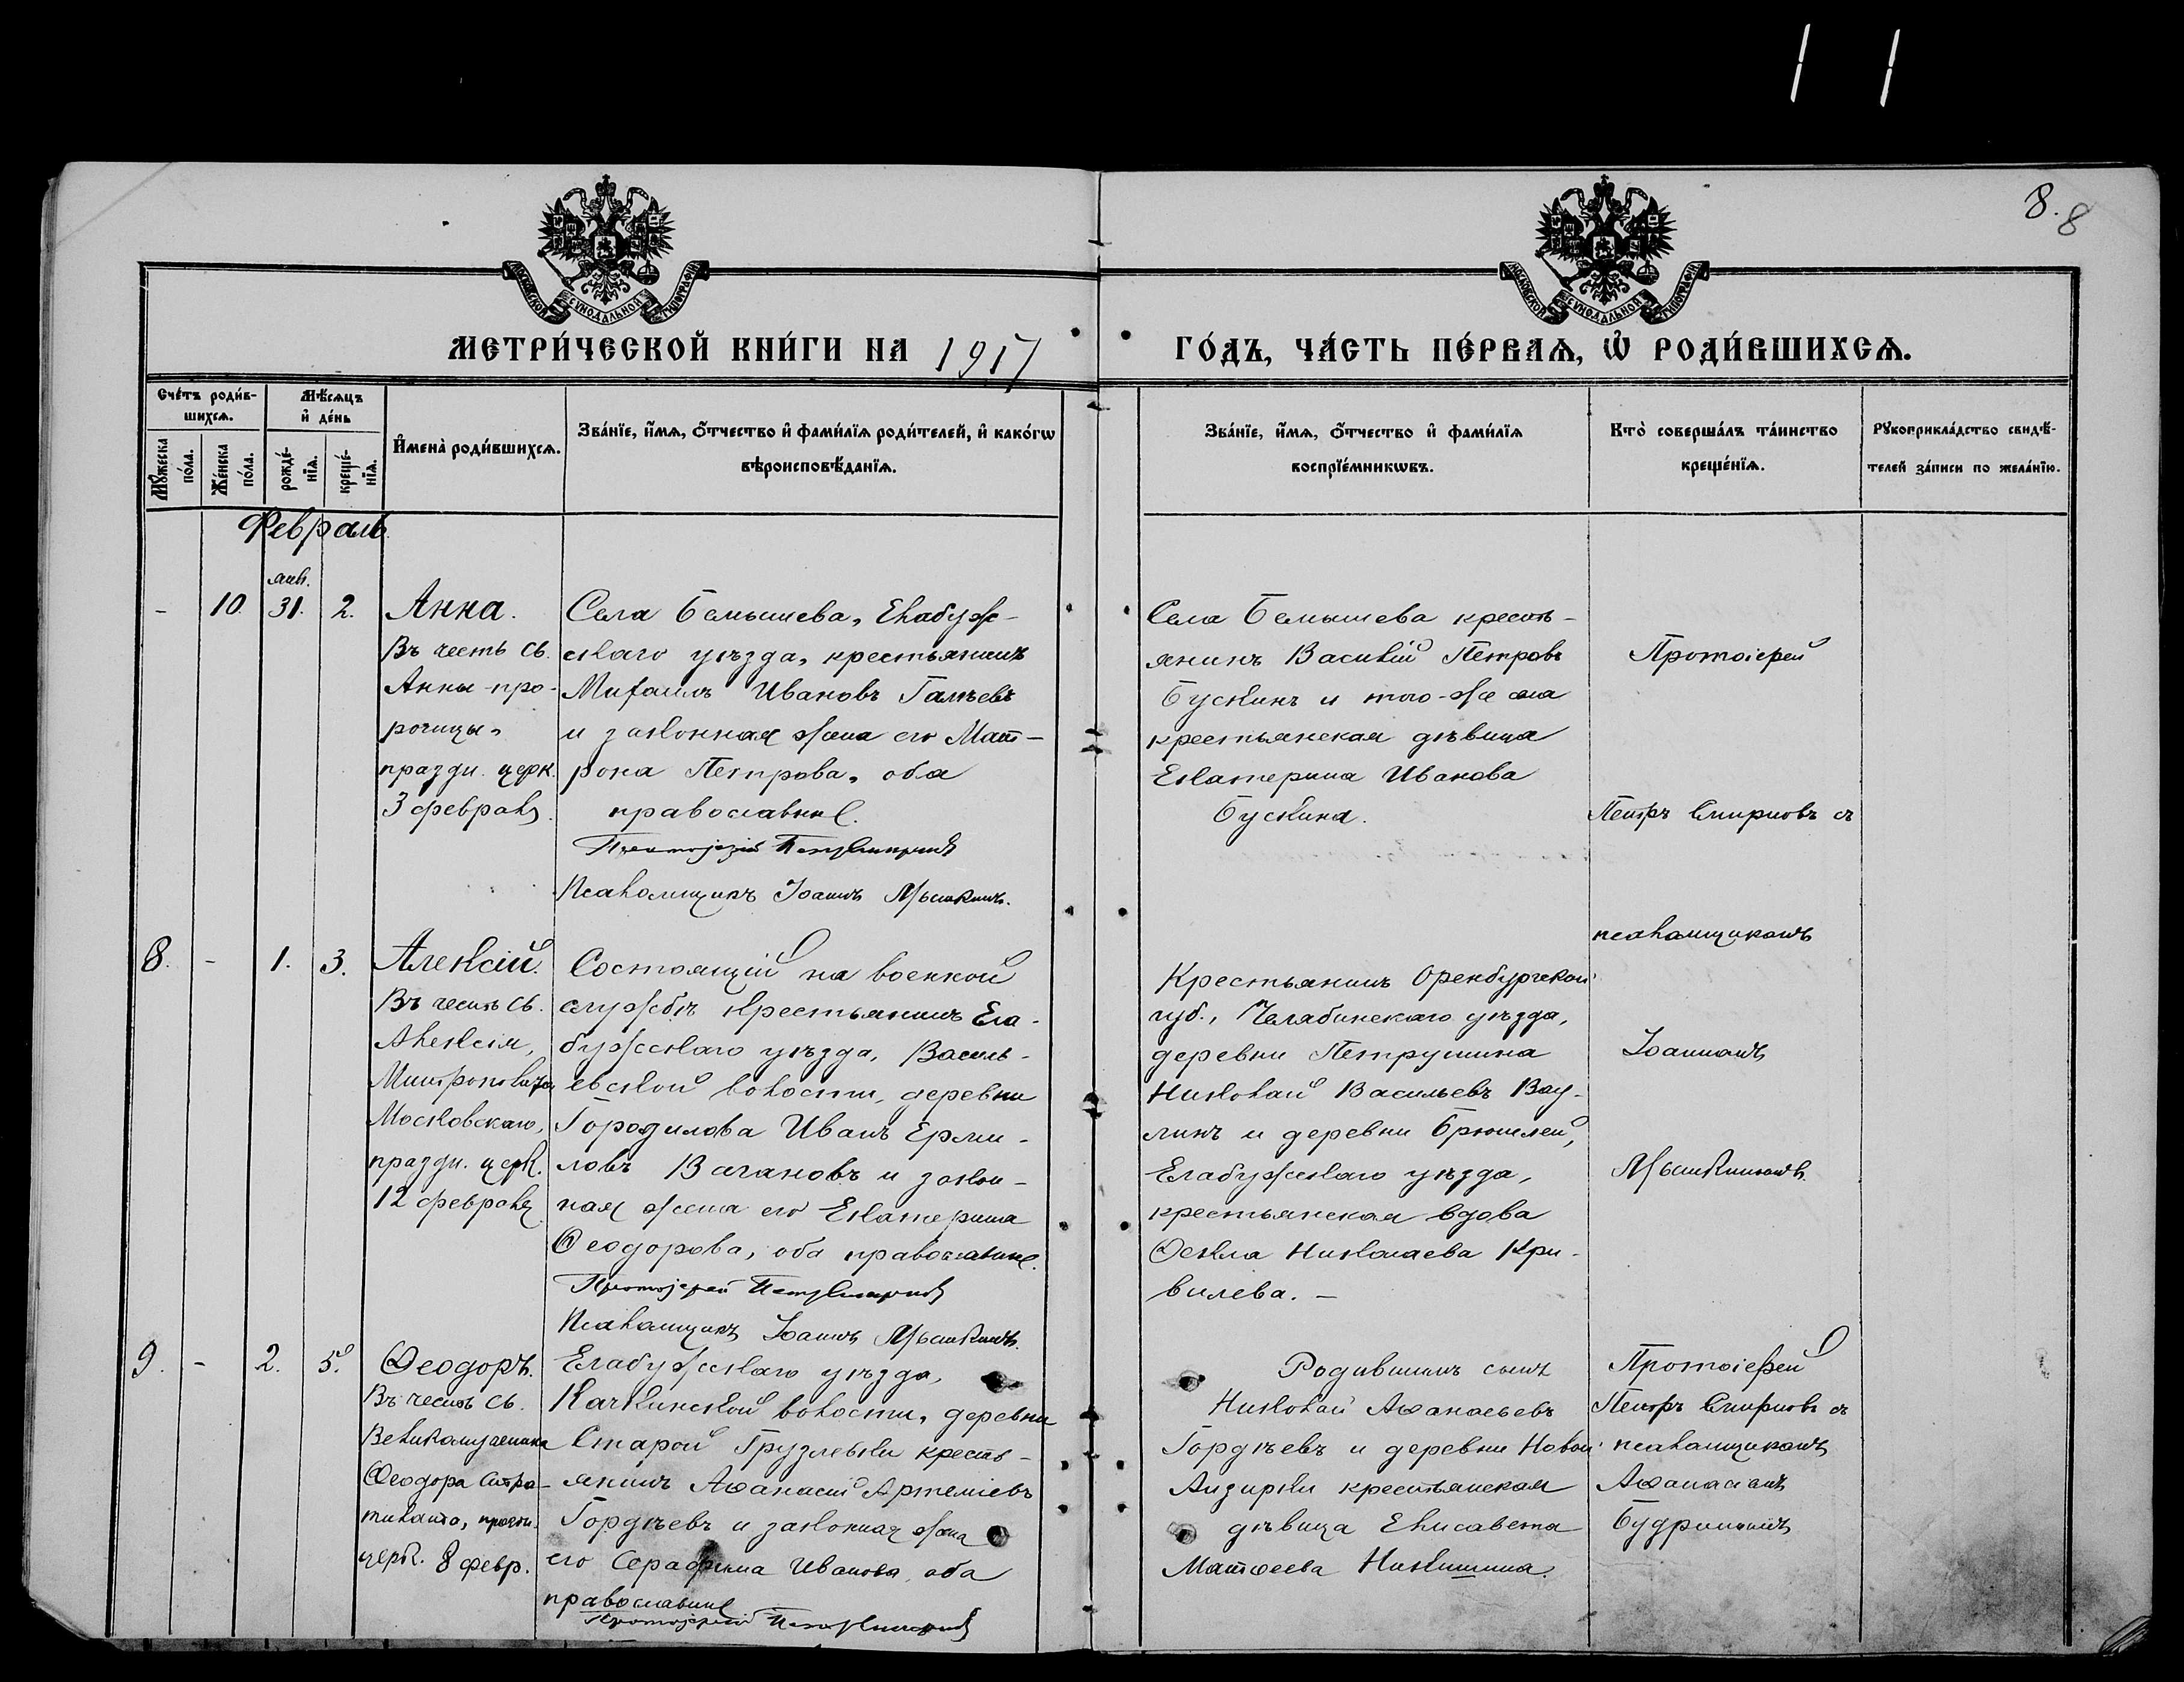 8. 8
МОСКОВСКОЙ СѴНОДАЛЬНОЙ ТИПОГРАФІИ
МОСКОВСКОЙ СѴНОДАЛЬНОЙ ТИПОГРАФІИ
МЕТРИ́ЧЕСКОЙ КНИ́ГИ НА 1917
ГО́ДЪ, ЧА́СТЬ ПЕ́РВАѦ, Ѡ҆ РОДИ́ВШИХСѦ.
Сче́тъ роди́в-
шихсѧ.
Мꙋжеска
по́ла.
Же́нска
по́ла.
Мѣ́сѧцъ
и҆ де́нь
рожде́-
нїѧ.
креще́-
нїѧ.
И҆мена̀ роди́вшихсѧ.
Зва́нїе, и҆́мѧ, ѻ҆́тчество и҆ фами́лїѧ роди́телей, и҆ како́гѡ
вѣроисповѣ́данїѧ.
Зва́нїе, и҆́мѧ, ѻ҆́тчество и҆ фами́лїѧ
воспрїе́мникѡвъ.
Кто̀ соверша́лъ та́инство
креще́нїѧ.
Рꙋкоприкла́дство свидѣ́-
телей за́писи по жела́нїю.
Февраль.
янв.
- 10. 31. 2.
Анна.
Въ честь св.
Анны-про-
рочицы,
праздн. церк.
3 февраля.
Села Бемышева, Елабуж-
скаго уѣзда, крестьянинъ
Михаилъ Ивановъ Галѣевъ
и законная жена его Мат-
рона Петрова, оба
православные.
Протоіерей Петръ Смирновъ
Псаломщикъ Іоаннъ Мышкинъ.
Села Бемышева кресть-
янинъ Василій Петровъ
Бускинъ и того-же села
крестьянская дѣвица
Екатерина Иванова
Бускина.
Протоіерей
Петръ Смирновъ съ
псаломщикомъ
Іоанномъ
Мышкинымъ.
8. - 1. 3.
Алексій.
Въ честь св.
Алексія,
Митрополита
Московскаго,
праздн. церк.
12 февраля.
Состоящій на военной
службѣ крестьянинъ Ела-
бужскаго уѣзда, Василь-
евской волости, деревни
Городилова Иванъ Ерми-
ловъ Вагановъ и закон-
ная жена его Екатерина
Ѳеодорова, оба православные.
Протоіерей Петръ Смирновъ
Псаломщикъ Іоаннъ Мышкинъ.
Крестьянинъ Оренбургской
губ., Челябинскаго уѣзда,
деревни Петрушина
Николай Васильевъ Вау-
линъ и деревни Брюшлей,
Елабужскаго уѣзда,
крестьянская вдова
Ѳекла Николаева Кри-
вилева. -
9. - 2. 5.
Ѳеодоръ.
Въ честь св.
Великомученика
Ѳеодора Стра-
тилата, праздн.
церк. 8 февр.
Елабужскаго уѣзда,
Качкинской волости, деревни
Старой Грузлевки кресть-
янинъ Аѳанасій Артеміевъ
Гордѣевъ и законная жена
его Серафима Иванова, оба
православные
Протоіерей Петръ Смирновъ
Родившимъ сынъ
Николай Аѳанасьевъ
Гордѣевъ и деревни Новой
Анзирки крестьянская
дѣвица Елисавета
Матѳеева Никишина.
Протоіерей
Петръ Смирновъ съ
псаломщикомъ
Аѳанасіемъ
Будринымъ